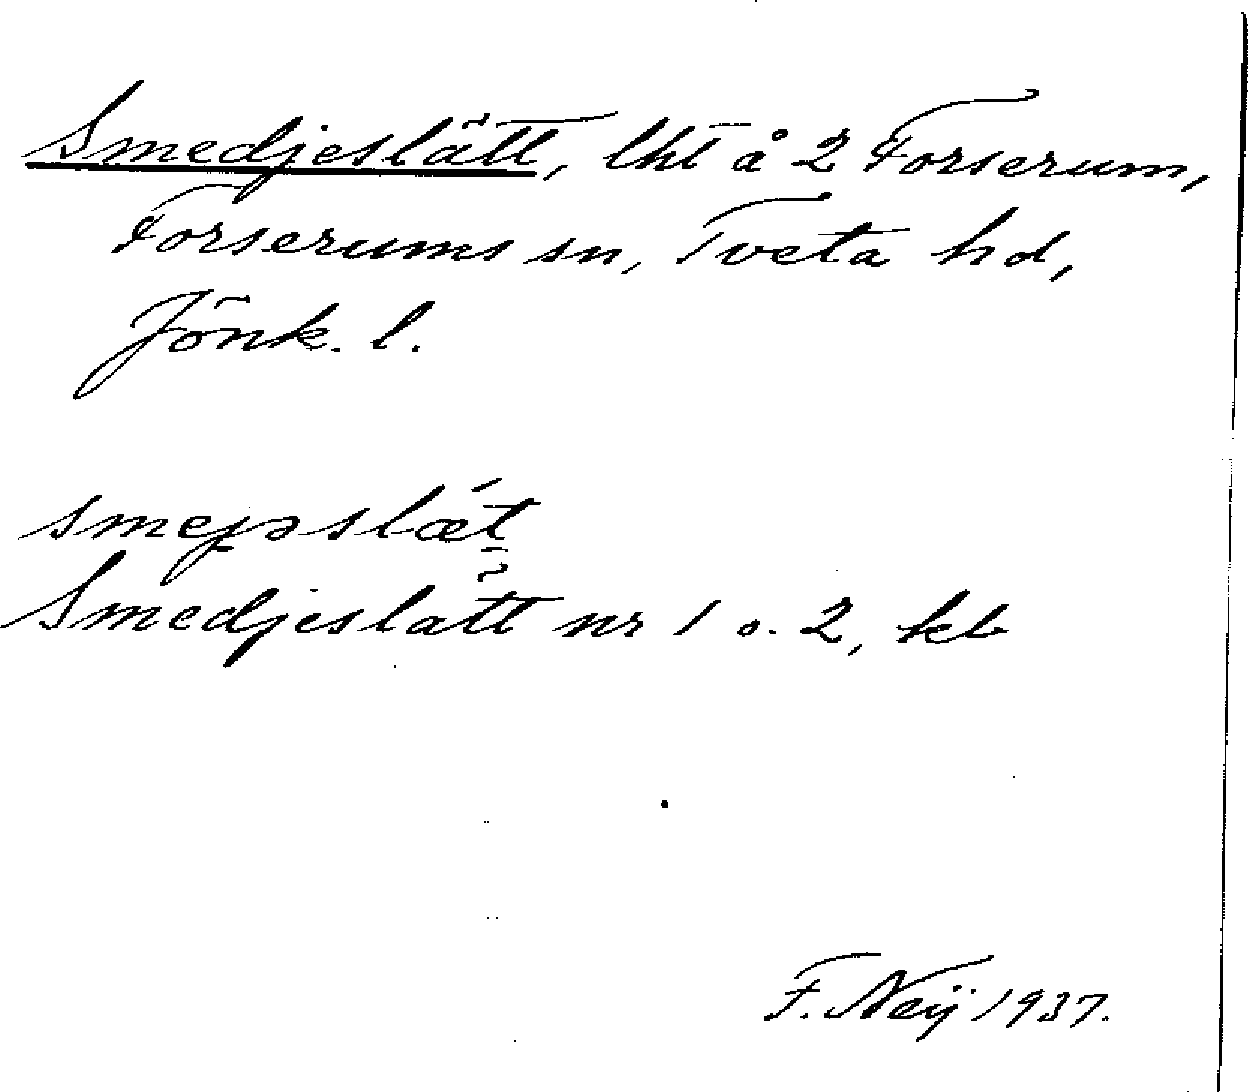 Smedjeslätt, lht å 2 Forserum,
Forserums sn, Tveta hd,
Jönk. l.
smejəslǽt
Smedjeslätt nr 1 o. 2, kb
F. Neÿ 1937.